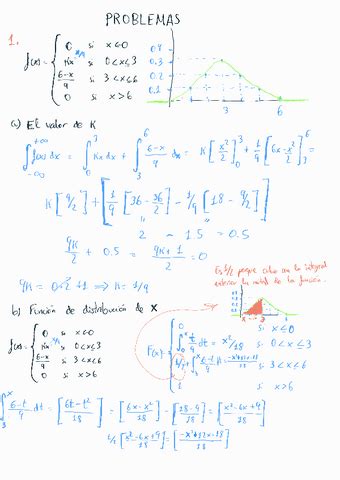 PROBLEMAS
1.
f(x) = { 0 si x≤0
x/9 Kx si 0<x≤3
6-x/9 si 3<x≤6
0 si x>6
0.4
0.3
0.2
0.1
3 6
a) El valor de K
∫_{-∞}^{+∞} f(x) dx = ∫_0^3 Kx dx + ∫_3^6 6-x/9 dx = K [x²/2]_0^3 + 1/9 [6x-x²/2]_3^6 =
K [9/2] + [1/9 [36 - 36/2] - 1/9 [18 - 9/2]]
2 - 1.5 = 0.5
9K/2 + 0.5 = 9K+1/2 = 0
9K = 0·2+1 ⇒ K = 1/9
Es 1/2 porque calcu con la integral
anterior la mitad de la función.
b) Función de distribución de X
f(x) = { 0 si x≤0
x/9 Kx si 0<x≤3
6-x/9 si 3<x≤6
0 si x>6
F(x) = { 0 si x≤0
∫_0^x t/9 dt = x²/18 si 0<x≤3
1/2 + ∫_3^x 6-t/9 dt = si 3<x≤6
1 si x>6
∫_3^x 6-t/9 dt = [6t-t²/18] = [6x-x²/18] - [18-9/18] = [x²-6x+9/18]